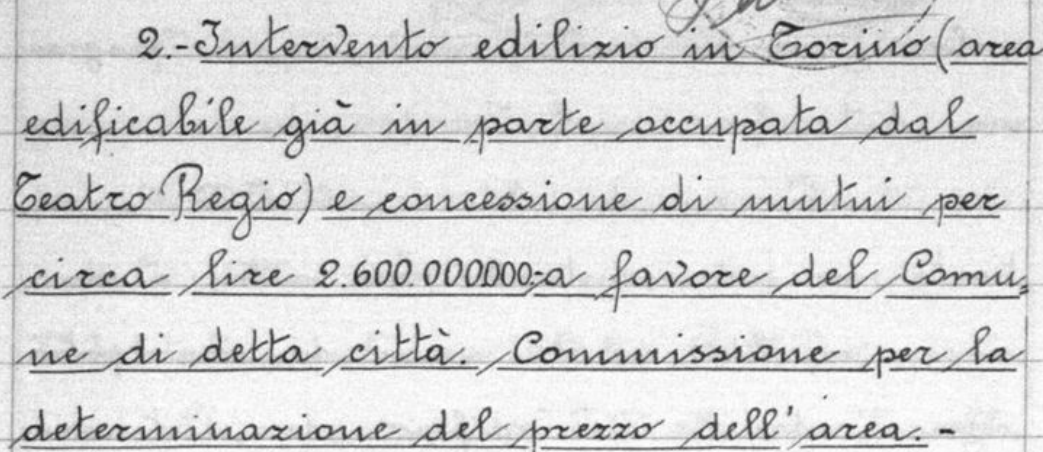 2.- Intervento edilizio in Torino (area
edificabile già in parte occupata dal
Teatro Regio) e concessione di mutui per
circa lire 2.600.000.000.- a favore del Comu=
ne di detta città. Commissione per la
determinazione del prezzo dell'area. -